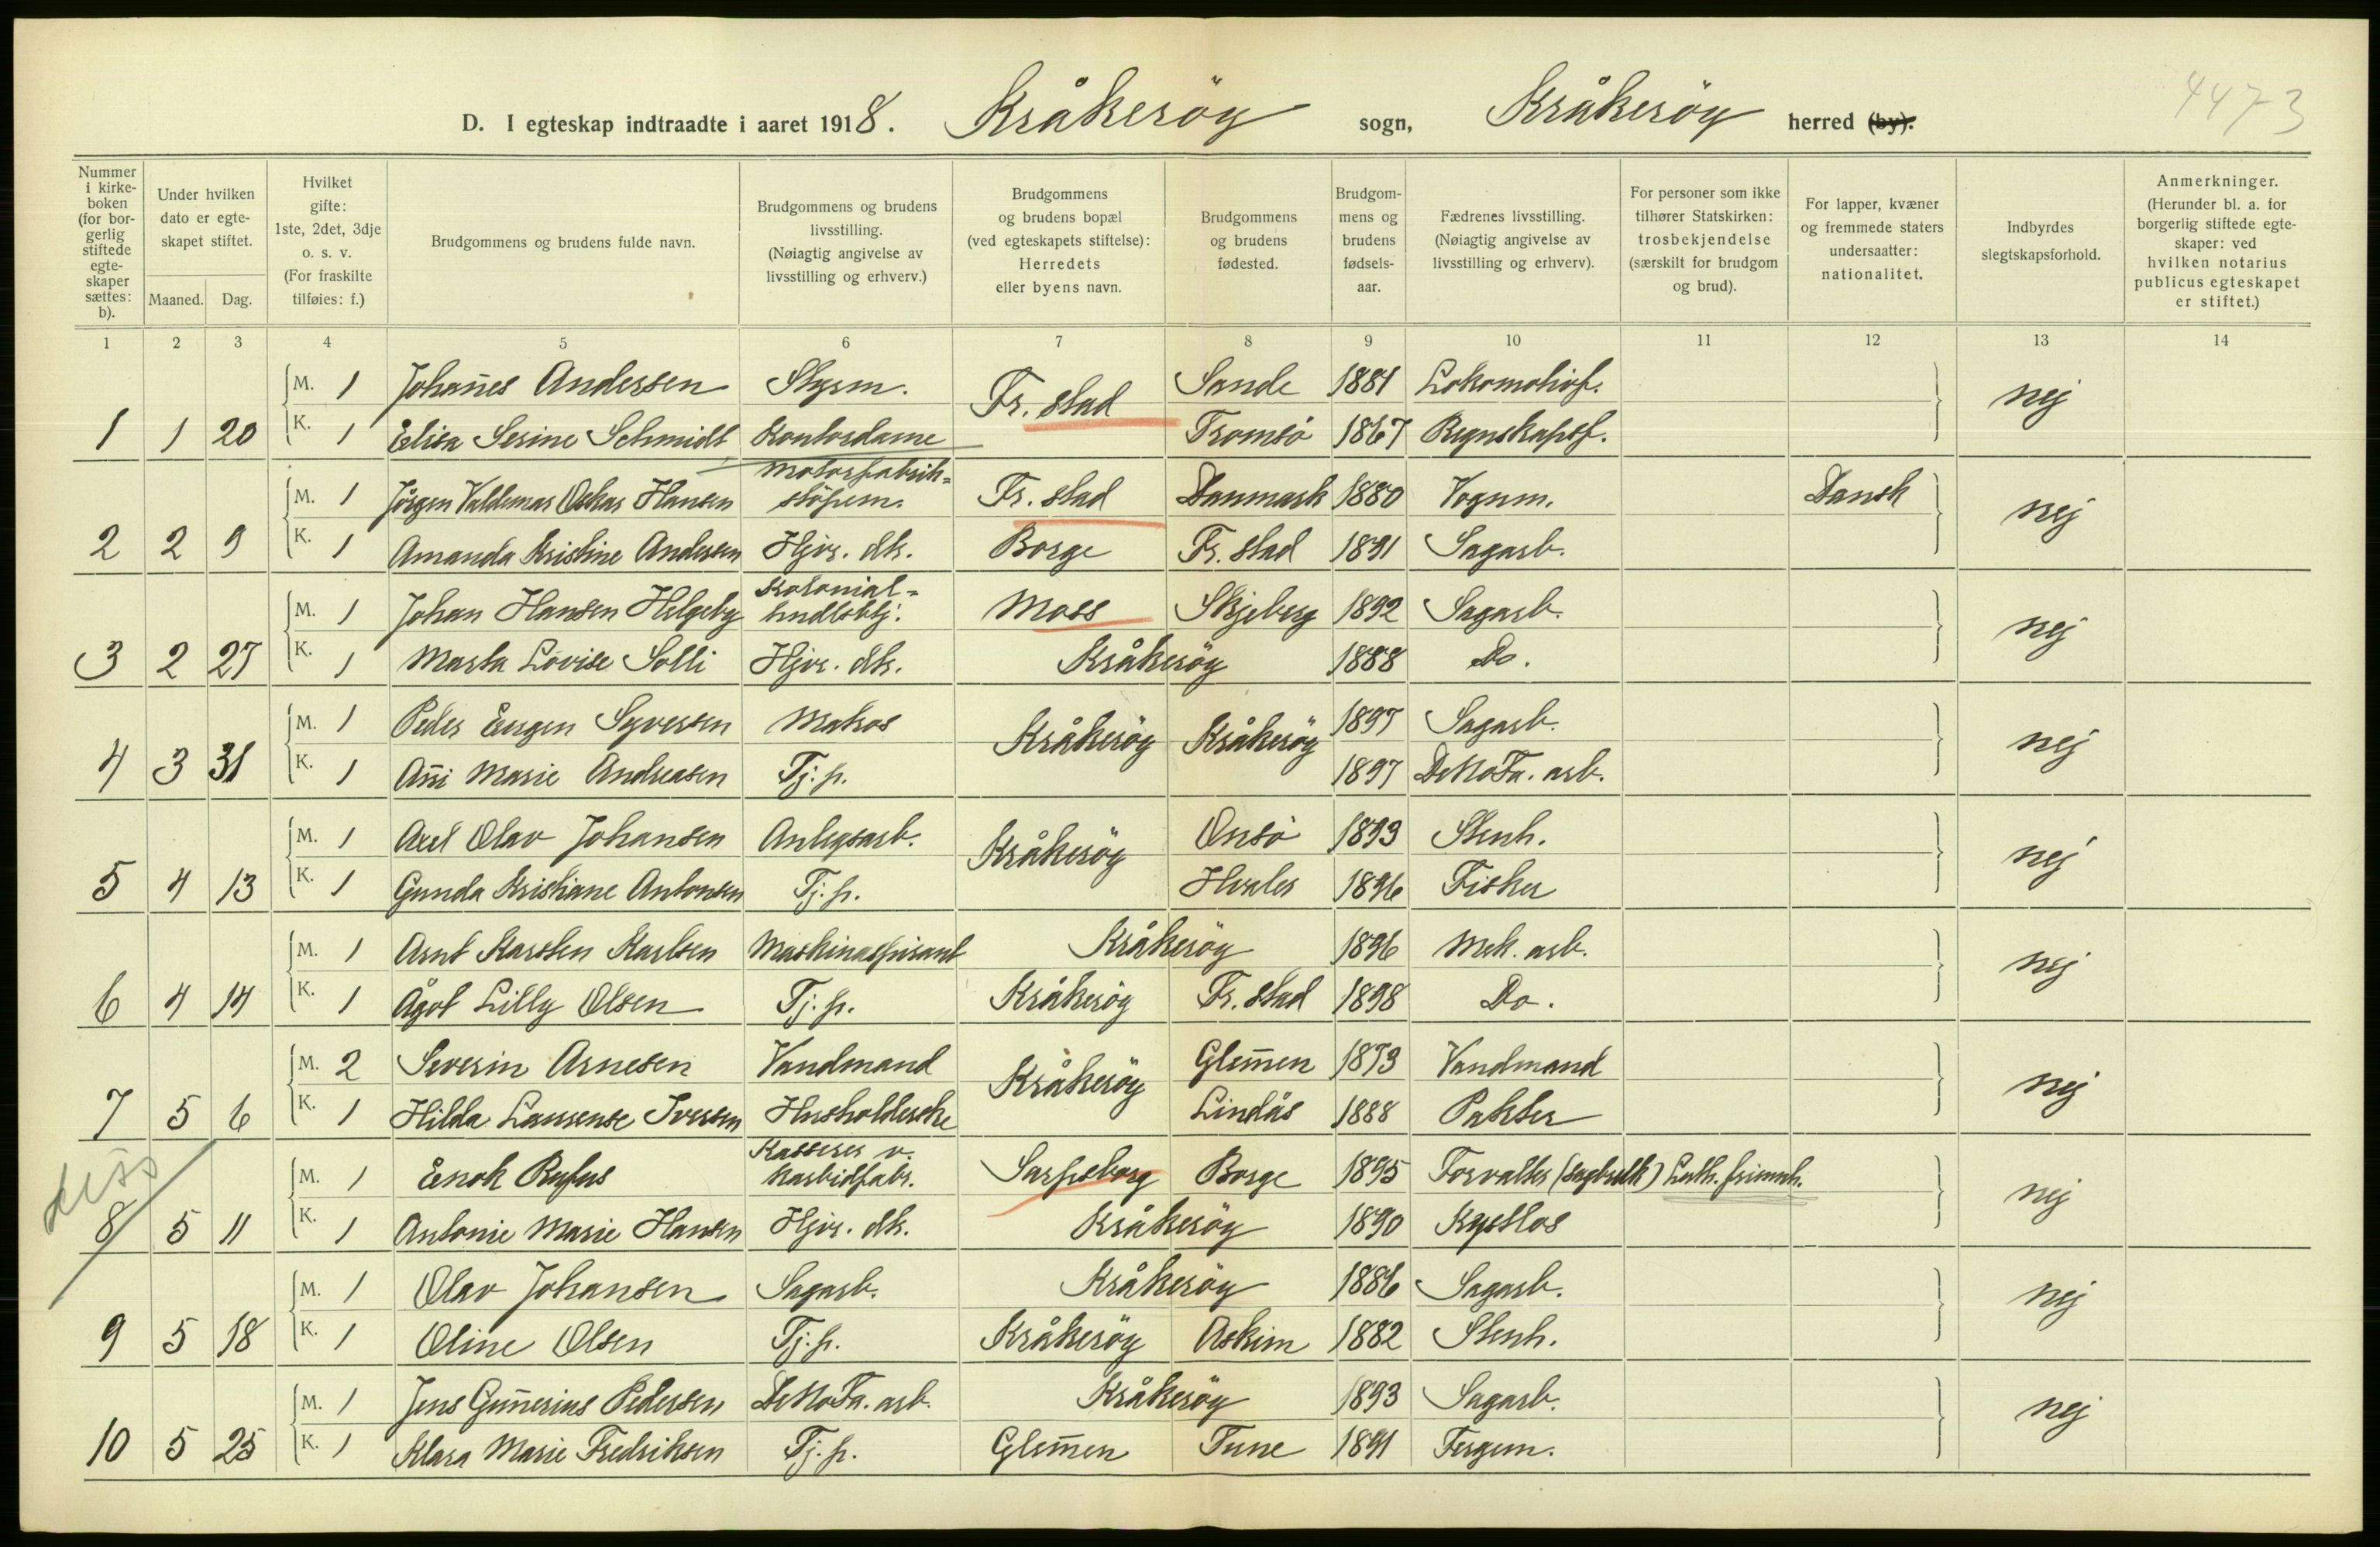 4473
D. I egteskap indtraadte i aaret 1918. Kråkeröy sogn, Kråkeröy herred (by).
Nummer i kirkeboken (for borgerlig stiftede egteskaper sættes: b).
Under hvilken dato er egteskapet stiftet.
Maaned. Dag.
Hvilket gifte: 1ste, 2det, 3dje o. s. v. (For fraskilte tilføies: f.)
Brudgommens og brudens fulde navn.
Brudgommens og brudens livsstilling. (Nøiagtig angivelse av livsstilling og erhverv.)
Brudgommens og brudens bopæl (ved egteskapets stiftelse): Herredets eller byens navn.
Brudgommens og brudens fødested.
Brudgommens og brudens fødselsaar.
Fædrenes livsstilling. (Nøiagtig angivelse av livsstilling og erhverv).
For personer som ikke tilhører Statskirken: trosbekjendelse (særskilt for brudgom og brud).
For lapper, kvæner og fremmede staters undersaatter: nationalitet.
Indbyrdes slegtskapsforhold.
Anmerkninger. (Herunder bl. a. for borgerlig stiftede egteskaper: ved hvilken notarius publicus egteskapet er stiftet.)
1 2 3 4 5 6 7 8 9 10 11 12 13 14
M. 1 Johan̄es Andersen Styrm. Fr. stad Sande 1881 Lokomotivf. nej
1 1 20 K. 1 Elisa Serine Schmidt Kontordame Tromsö 1867 Regnskapsf.
M. 1 Jörgen Valdemar Oskar Hansen Motorfabrikstöperm. Fr. stad Danmark 1880 Vognm. Dansk nej
2 2 9 K. 1 Amanda Kristine Andersen Hjv. dtr. Borge Fr. stad 1891 Sagarb.
M. 1 Johan Hansen Helgeby Kolonialhndlsbtj. Moss Skjeberg 1892 Sagarb. nej
3 2 27 K. 1 Marta Lovise Solli Hjv. dtr. Kråkeröy 1888 Do.
M. 1 Peder Eugen Syversen Matros Kråkeröy Kråkeröy 1897 Sagarb. nej
4 3 31 K. 1 An̄i Marie Andreasen Tj. p. 1897 DeNoFa. arb.
M. 1 Axel Olav Johansen Anlegsarb. Kråkeröy Onsö 1893 Stenh. nej
5 4 13 K. 1 Gunda Kristiane Antonsen Tj. p. Hvaler 1896 Fisker
M. 1 Arnt Karsten Karlsen Maskinaspirant Kråkeröy 1896 Mek. arb. nej
6 4 14 K. 1 Ågot Lilly Olsen Tj. p. Kråkeröy Fr. stad 1898 Do.
M. 2 Severin Arnesen Vandmand Kråkeröy Glem̄en 1873 Vandmand nej
7 5 6 K. 1 Hilda Laurense Iversen Husholderske Lindås 1888 Pakter
M. 1 Enok Rufus Kasserer v. Karbidfabr. Sarpsborg Borge 1895 Forvalter (sagbruk) Luth. frimnh. nej
8 5 11 K. 1 Antonie Marie Hansen Hjv. dtr. Kråkeröy 1890 Kystlos
M. 1 Olav Johansen Sagarb. Kråkeröy 1886 Sagarb. nej
9 5 18 K. 1 Oline Olsen Tj. p. Kråkeröy Askim 1882 Stenh.
M. 1 Jens Gun̄erius Pedersen DeNoFa. arb. Kråkeröy 1893 Sagarb. nej
10 5 25 K. 1 Klara Marie Fredriksen Tj. p. Glem̄en Tune 1891 Fergem.